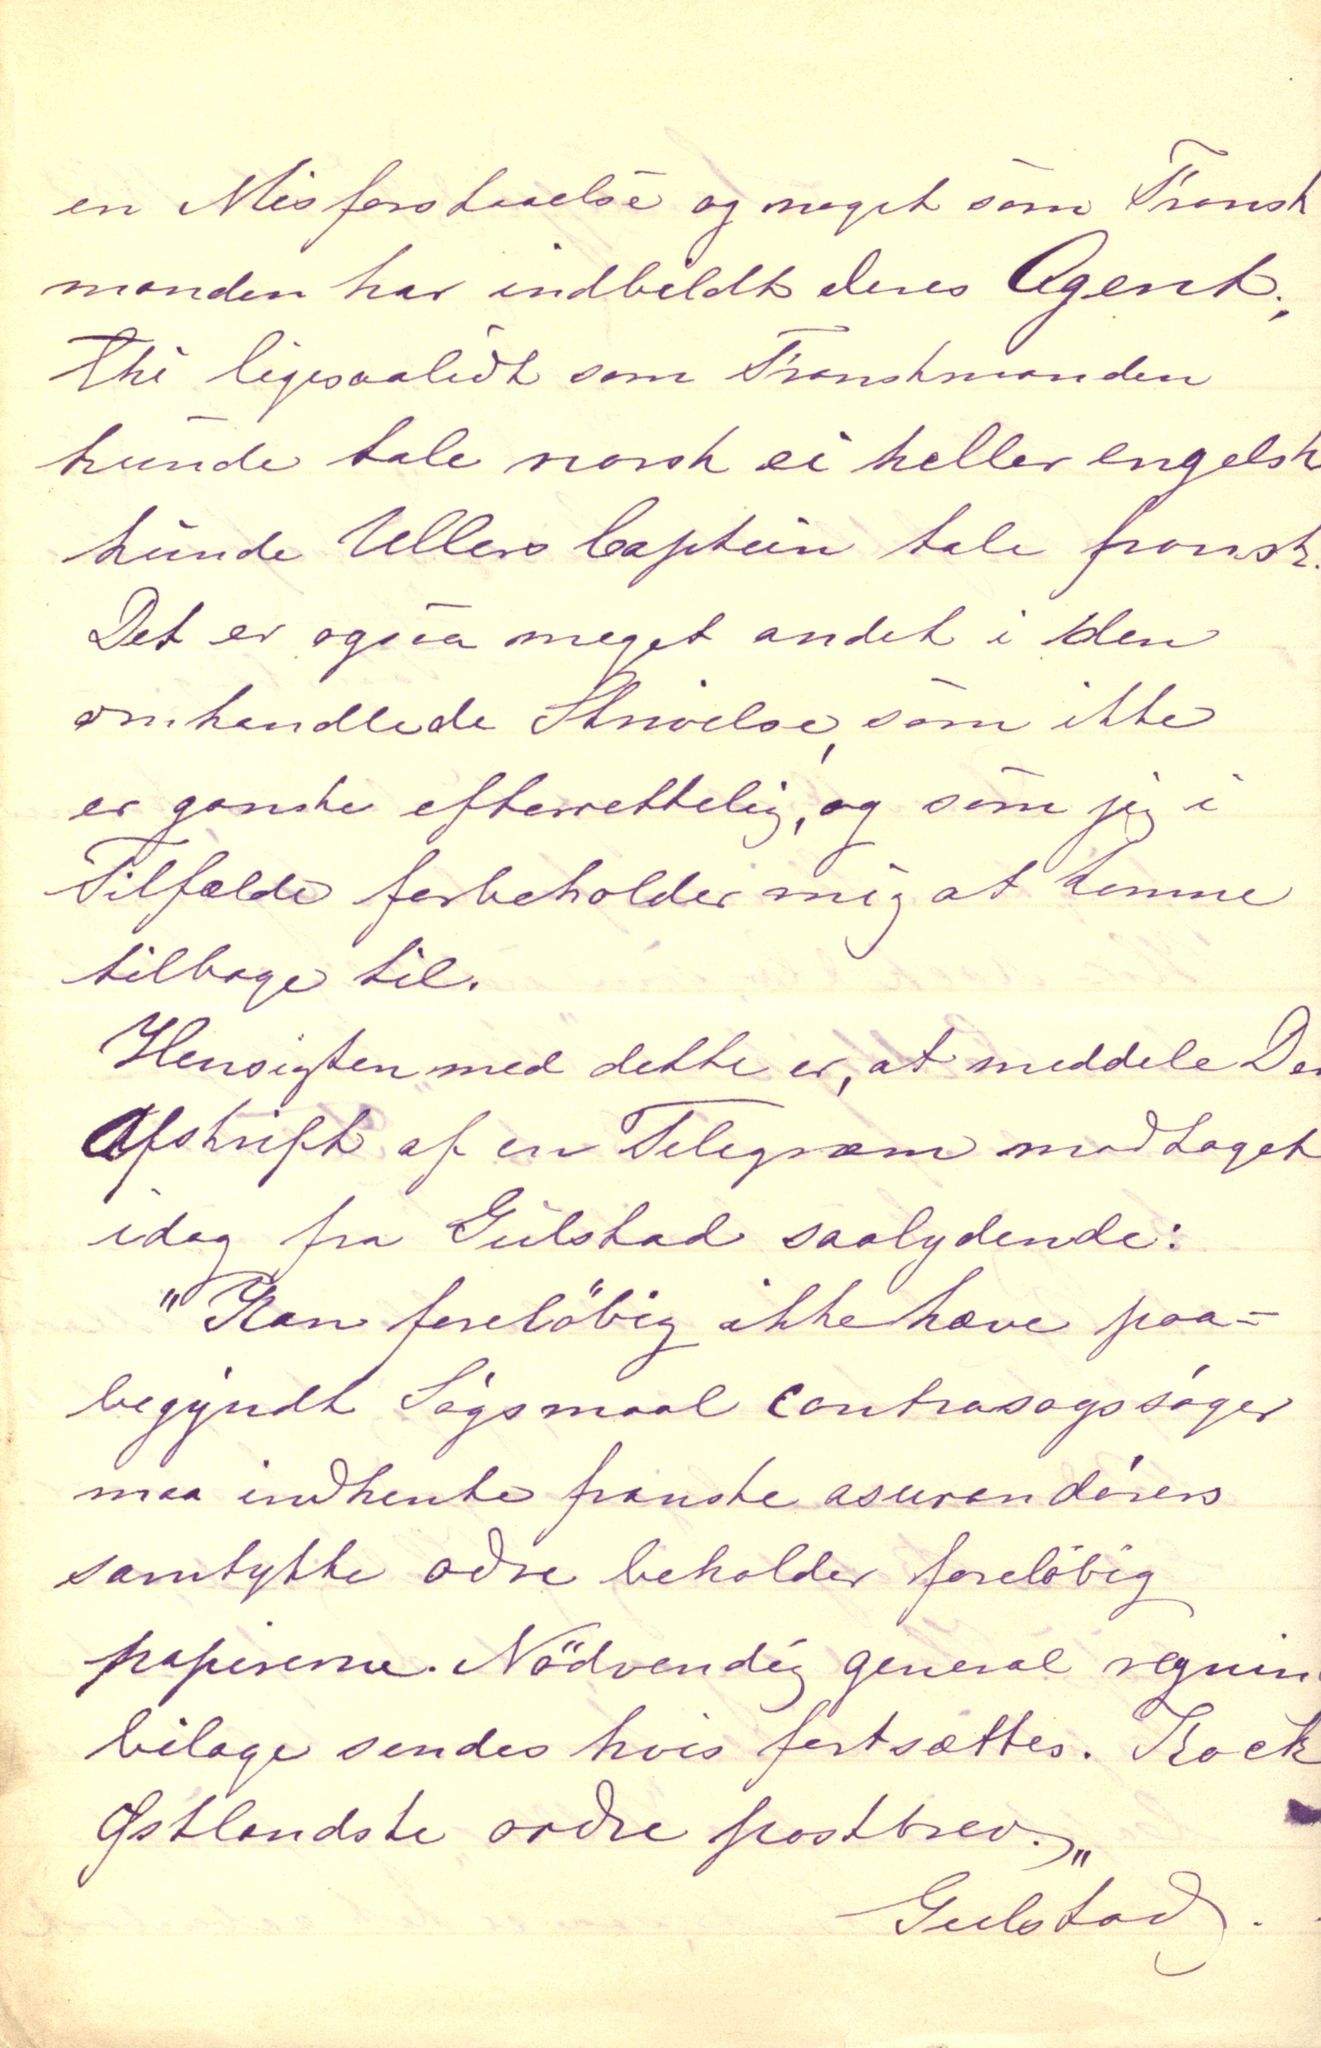 en Misforstaaelse og noget som Fransk
manden har indbildt deres Agent;
thi ligesaalidt som Franskmanden
kunde tale norsk ei heller engelsk
kunde Ullers Captein tale fransk.
Det er ogsaa meget andet i den
omhandlede Skrivelse, som ikke
er ganske efterrettelig, og som jeg i
Tilfælde forbeholder mig at komme
tilbage til.
Hensigten med dette er, at meddele De
Afskrift af en Telegram modtaget
idag fra Gulstad saalydende:
"Kan foreløbig ikke hæve paa-
begyndt Søgsmaal contrasagssøger
maa indhente franske asurandørers
samtykke odre beholder foreløbig
papirerne. Nödvendig general regnin
bilage sendes hvis fortsættes. Kock
Østlandske ordre postbrev."
Gulstad.